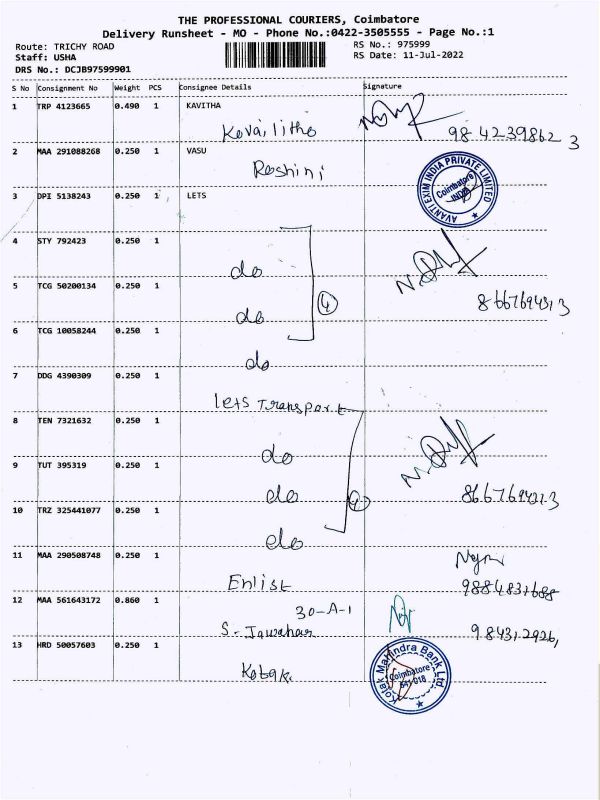 THE PROFESSIONAL COURIERS, Coimbatore
Delivery Runsheet - MO - Phone No.:0422-3505555 - Page No.:1
Route: TRICHY ROAD
RS No.: 975999
Staff: USHA
RS Date: 11-Jul-2022
DRS No.: DCJB97599901
S No Consignment No Weight PCS Consignee Details Signature
1 TRP 4123665 0.490 1 KAVITHA
Kovailitho 98 4239862 3
2 MAA 291088268 0.250 1 VASU
Roshini
AVANTI EXIM INDIA PRIVATE LIMITED
Coimbatore
INDIA
3 DPI 5138243 0.250 1 LETS
4 STY 792423 0.250 1
do
5 TCG 50200134 0.250 1
do 4
6 TCG 10058244 0.250 1
do
7 DDG 4390309 0.250 1
lets Transport
8 TEN 7321632 0.250 1
do
9 TUT 395319 0.250 1
do
10 TRZ 325441077 0.250 1
do
11 MAA 290508748 0.250 1
Enlist
12 MAA 561643172 0.860 1
30-A-1
S. Jawahar
13 HRD 50057603 0.250 1
Kotak
Kotak Mahindra Bank Ltd.
Coimbatore
641 018